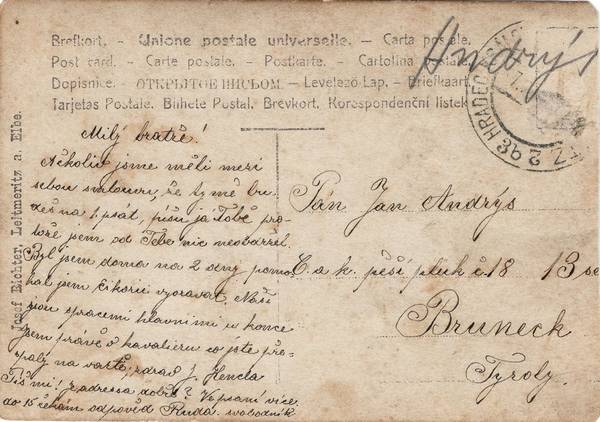 Brefkort. - Unione postale universelle. - Carta postale.
Post card. - Carte postale. - Postkarte. - Cartolina postale.
Dopisnice. - ОТКРЫТОЕ ПИСЬОМ. - Levelező-Lap. - Briefkaart.
Tarjetas Postale. Bilhete Postal. Brevkort. Korespondenční lístek
Andrýs
HRADEC
Josef Richter, Leitmeritz a. Elbe.
Milý bratře!
Ačkoliv jsme měli mezi
sebou smlouvu, že ty mě bu-
deš na psát, píšu já Tobě pro-
tože jsem od Tebe nic neobdržel.
Byl jsem doma na 2 dny pomo-
hal jsem čikorii vyoravat. Naši
jsou s pracemi hlavními u konce
Jsem právě v kavalieru co jste pře-
na vartě, zdraví J. Hencla
Piš mi! z adressa dobře? Ve psaní více.
do 15 čekám odpověď Ruda. svobodník
Pán Jan Andrýs
C. a k. pěší pluk č. 18 13 se
Bruneck
Tyroly.